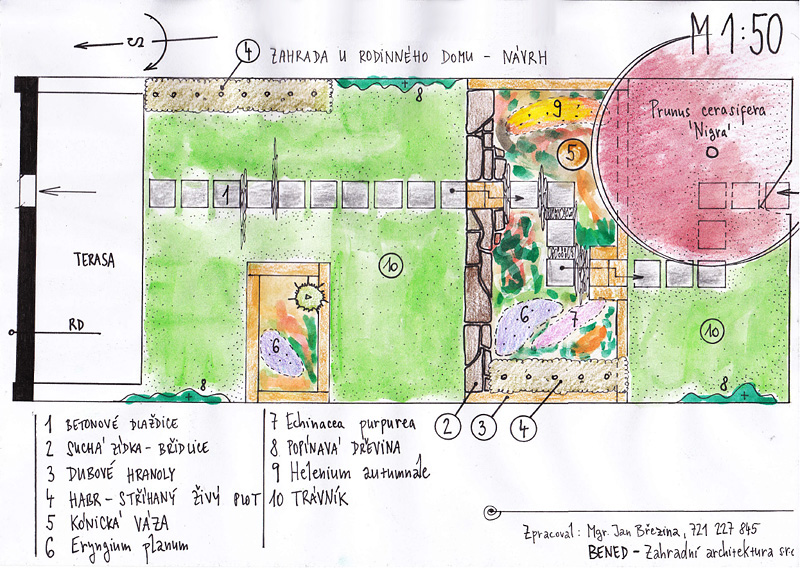 M 1:50
S
4 ZAHRADA U RODINNÉHO DOMU - NÁVRH
8
9
Prunus cerasifera
'Nigra'
5
1
TERASA
10
RD
6
6
7
10
8
8
2
3
4
1 BETONOVÉ DLAŽDICE
2 SUCHÁ ZÍDKA - BŘIDLICE
3 DUBOVÉ HRANOLY
4 HABR - STŘÍHANÝ ŽIVÝ PLOT
5 KÓNICKÁ VÁZA
6 Eryngium planum
7 Echinacea purpurea
8 POPÍNAVÁ DŘEVINA
9 Helenium autumnale
10 TRÁVNÍK
Zpracoval: Mgr. Jan Březina, 721 227 845
BENED - Zahradní architektura s.r.o